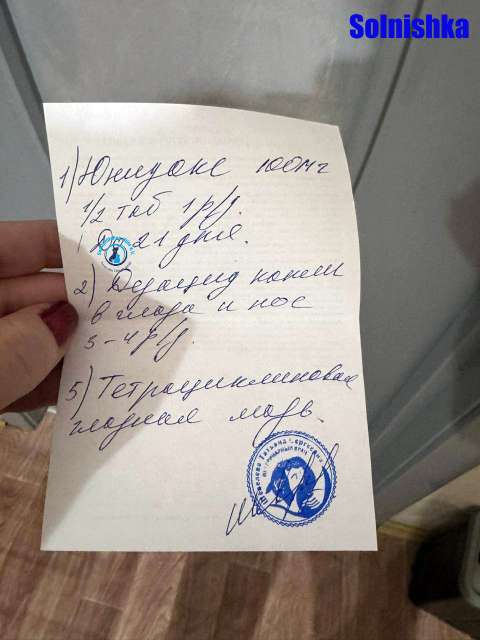 Solnishka
1) Юнидокс 100мг
1/2 таб 1 р/д.
Дн 21 дня.
2) Дезацид капли
в глаза и нос
3-4 р/д.
3) Тетрациклиновая
глазная мазь.
Татьяна Сергеевна